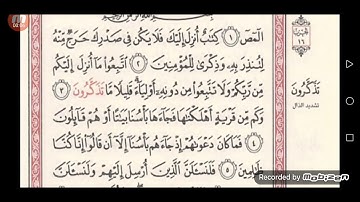 الٓمٓصٓ ١ كِتَٰبٌ أُنزِلَ إِلَيۡكَ فَلَا يَكُن فِي صَدۡرِكَ حَرَجٞ مِّنۡهُ
لِتُنذِرَ بِهِۦ وَذِكۡرَىٰ لِلۡمُؤۡمِنِينَ ٢ ٱتَّبِعُواْ مَآ أُنزِلَ إِلَيۡكُم
مِّن رَّبِّكُمۡ وَلَا تَتَّبِعُواْ مِن دُونِهِۦٓ أَوۡلِيَآءَۗ قَلِيلٗا مَّا تَذَّكَّرُونَ ٣
وَكَم مِّن قَرۡيَةٍ أَهۡلَكۡنَٰهَا فَجَآءَهَا بَأۡسُنَا بَيَٰتًا أَوۡ هُمۡ قَآئِلُونَ
٤ فَمَا كَانَ دَعۡوَىٰهُمۡ إِذۡ جَآءَهُم بَأۡسُنَآ إِلَّآ أَن قَالُوٓاْ إِنَّا كُنَّا
ظَٰلِمِينَ ٥ فَلَنَسۡـَٔلَنَّ ٱلَّذِينَ أُرۡسِلَ إِلَيۡهِمۡ وَلَنَسۡـَٔلَنَّ
١٦
تَذَّكَّرُونَ
تشديد الذال
Recorded by Mobizen